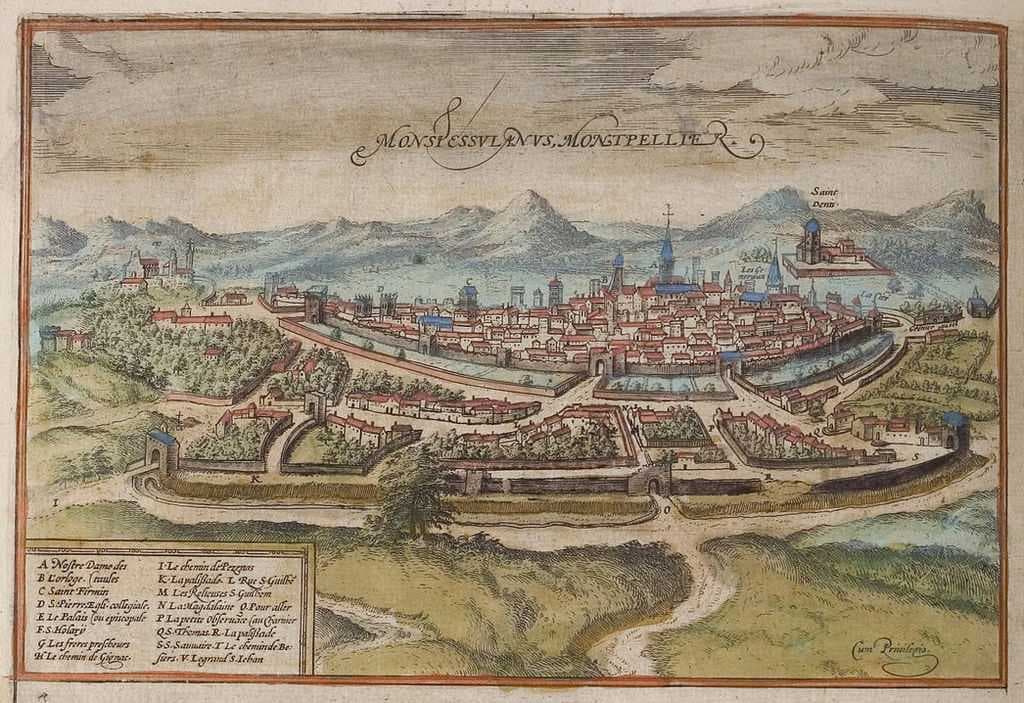 MONSPESSVLANVS, MONTPELLIER.
Saint
Denis
A Nostre Dame des
B L'orloge. (taules
C Saint Firmin
D S. Pierre, Egli. collegiale,
E Le Palais (ou episcopale
F. S. Holary
G Les freres prescheurs
H Le chemin de Gignac.
I Le chemin de Pezenas
K La palissade. L Rue S. Guilhē
M Les Relieuses S. Guilhem
N La Magdalaine O. Pour aller
P La petite Observāce (au Charnier
Q S. Thomas. R. La palissade
S S. Sauvaire. T Le chemin de Be-
siers. V. Le grand S. Iehan
Cum Privilegio.
I
K
O
R
S
Q